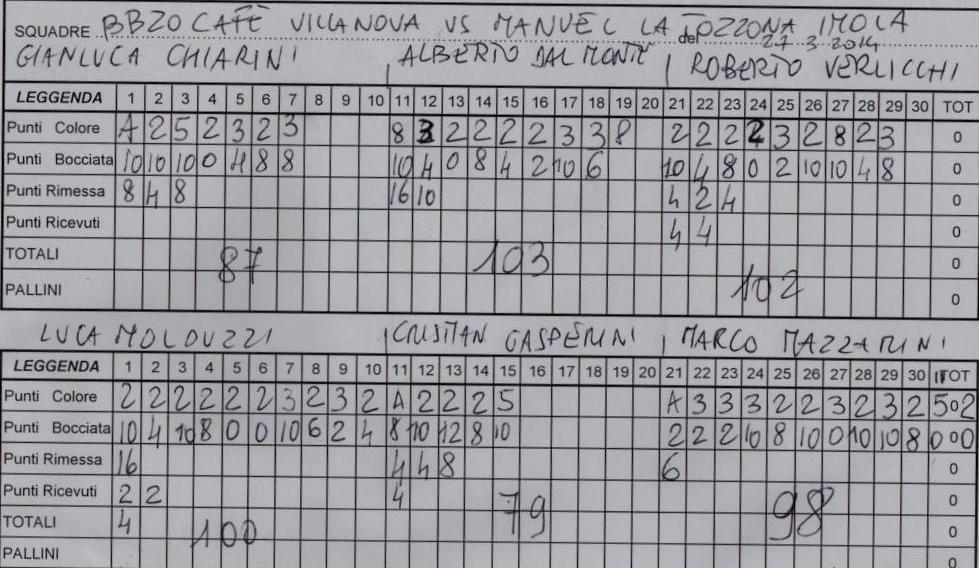 SQUADRE BBZO CAFÈ VILLANOVA VS MANUEL LA TOZZONA IMOLA
del 27 3 2014
GIANLUCA CHIARINI ALBERTO DAL MONTE ROBERTO VERLICCHI
LEGGENDA 1 2 3 4 5 6 7 8 9 10 11 12 13 14 15 16 17 18 19 20 21 22 23 24 25 26 27 28 29 30 TOT
Punti Colore A 2 5 2 3 2 3 8 3 2 2 2 2 3 3 8 2 2 2 2 3 2 8 2 3 0
Punti Bocciata 10 10 10 0 4 8 8 10 4 0 8 4 2 10 6 10 4 8 0 2 10 10 4 8 0
Punti Rimessa 8 4 8 16 10 4 2 4 0
Punti Ricevuti 4 4 0
TOTALI 87 103 102 0
PALLINI 0
LUCA MOLDUZZI CRISTIAN GASPERINI MARCO MAZZARINI
LEGGENDA 1 2 3 4 5 6 7 8 9 10 11 12 13 14 15 16 17 18 19 20 21 22 23 24 25 26 27 28 29 30 TOT
Punti Colore 2 2 2 2 2 2 3 2 3 2 A 2 2 2 5 A 3 3 3 2 2 3 2 3 2 5 0 2
Punti Bocciata 10 4 10 8 0 0 10 6 2 4 8 10 12 8 10 2 2 2 10 8 10 0 10 10 8 0 0 0
Punti Rimessa 16 4 4 8 6 0
Punti Ricevuti 2 2 4 0
TOTALI 4 100 79 98 0
PALLINI 0